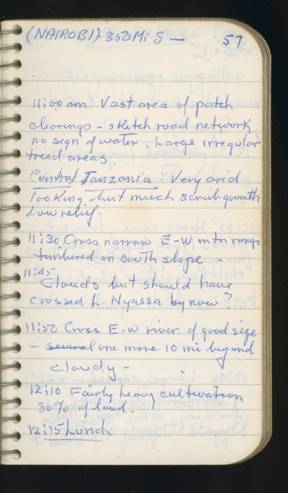 (NAIROBI) 350 Mi S — 57
11:00 am Vast area of patch
clearings - sketch road network
no sign of water. Large irregular
treed areas.
Central Tanzania: Very arid
looking but much scrub growth
Low relief
11:30 Cross narrow E-W mtn range
timbered on south slope -
11:45
Clouds but should have
crossed L. Nyassa by now?
11:50 Cross E.W river of good size
- several one more 10 mi beyond
cloudy -
12:10 Fairly heavy cultivation
30% of land.
12:15 Lunch